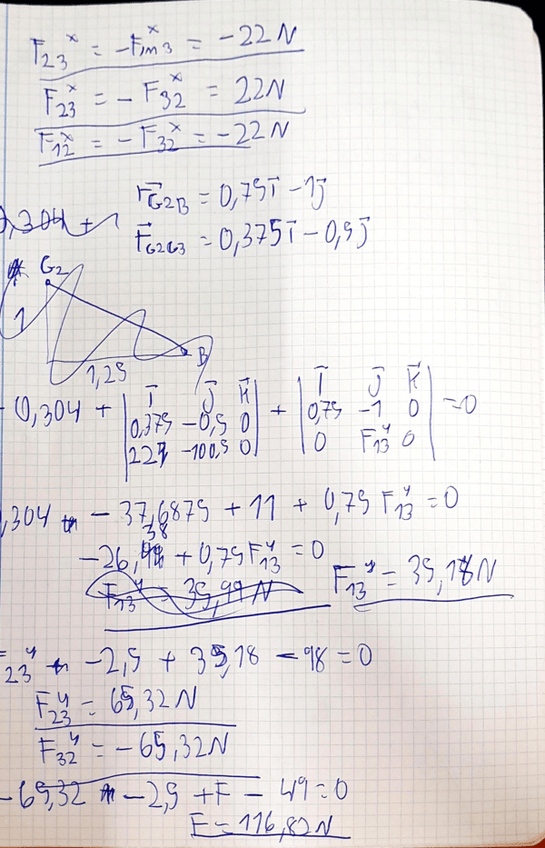 F₂₃ˣ = -Fᵢₙ₃ˣ = -22N
F₂₃ˣ = -F₃₂ˣ = 22N
F₁₂ˣ = -F₃₂ˣ = -22N
r⃗G2B = 0,75i⃗ - 1j⃗
r⃗G2G3 = 0,375i⃗ - 0,5j⃗
G₂
1
B
1,25
0,304 + | i⃗ j⃗ k⃗ | + | i⃗ j⃗ k⃗ | = 0
| 0,375 -0,5 0 | | 0,75 -1 0 |
| 22 -100,5 0 | | 0 F₁₃ʸ 0 |
,304 - 37,6875 + 11 + 0,75 F₁₃ʸ = 0
-26,38 + 0,75F₁₃ʸ = 0
F₁₃ʸ = 35,18N
F₂₃ʸ - 2,5 + 35,18 - 98 = 0
F₂₃ʸ = 65,32N
F₃₂ʸ = -65,32N
-65,32 - 2,5 + F - 49 = 0
F = 116,82N